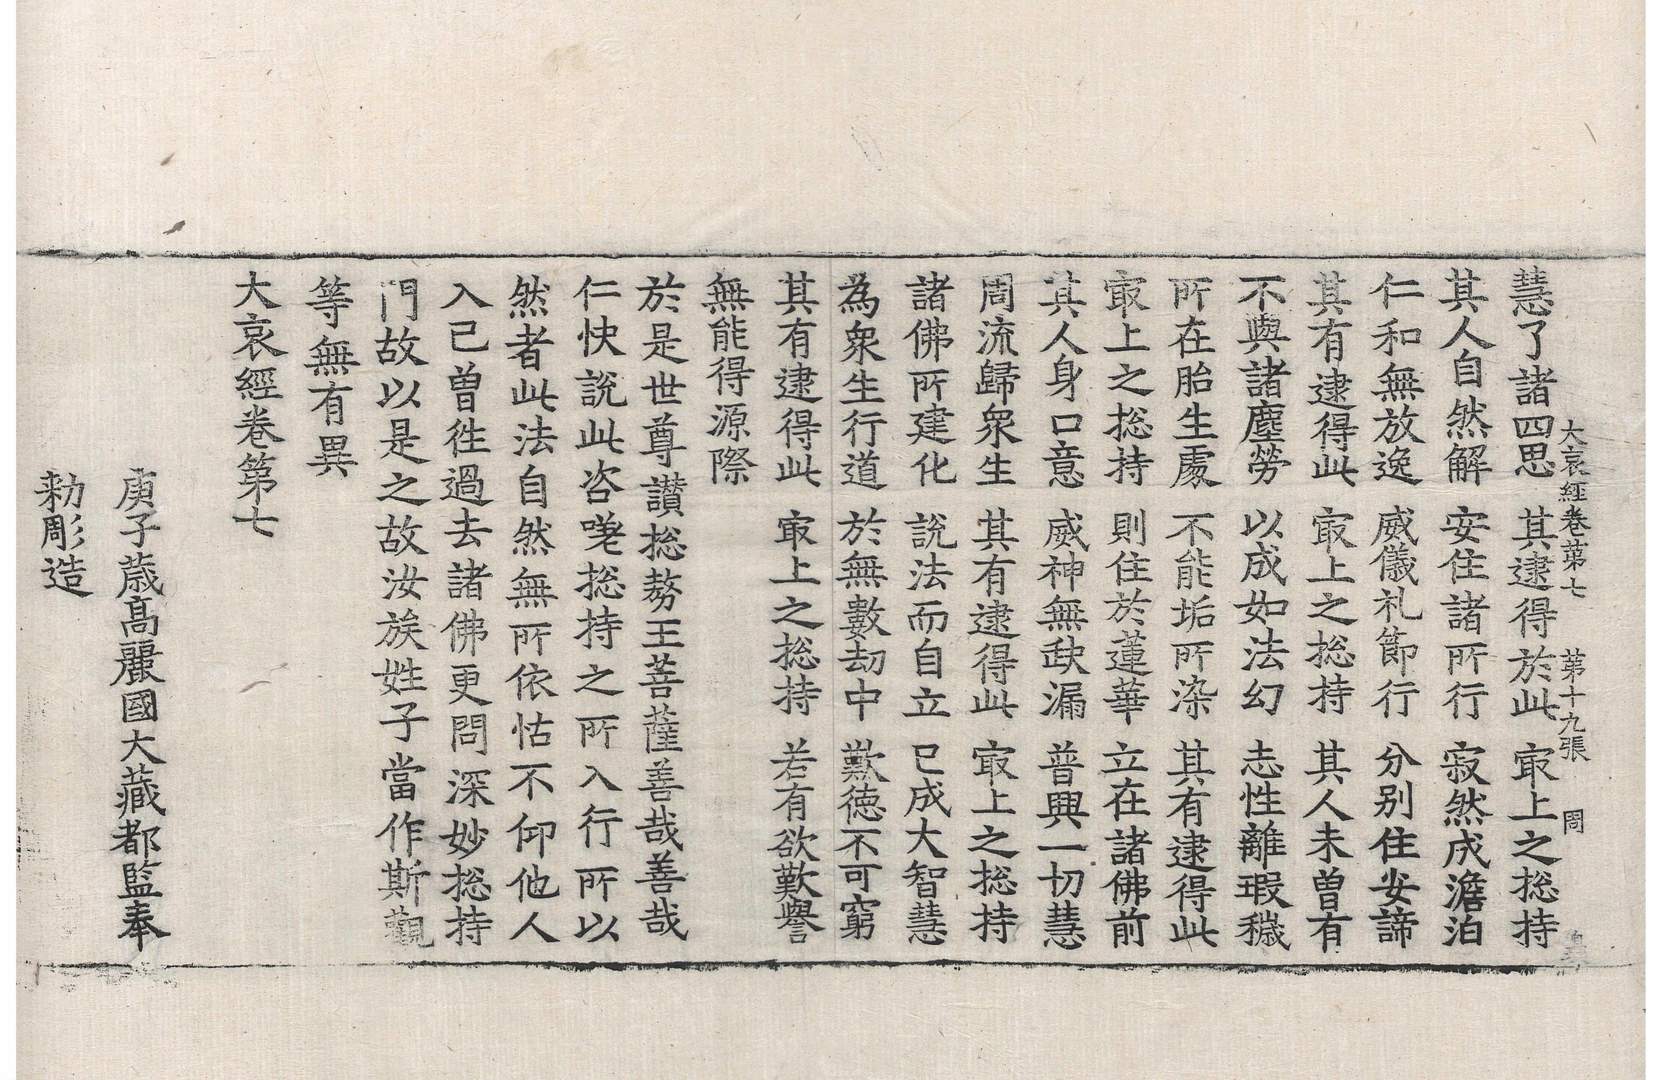 大哀經卷第七　第十九張　周
慧了諸四思　其逮得於此　㝡上之捴持
其人自然解　安住諸所行　寂然成澹泊
仁和無放逸　威儀礼節行　分別住安諦
其有逮得此　㝡上之捴持　其人未曽有
不與諸塵勞　以成如法幻　志性離瑕穢
所在胎生處　不能垢所染　其有逮得此
㝡上之捴持　則住於蓮華　立在諸佛前
其人身口意　威神無缺漏　普興一切慧
周流歸衆生　其有逮得此　㝡上之捴持
諸佛所建化　說法而自立　已成大智慧
為衆生行道　於無數劫中　歎德不可窮
其有逮得此　㝡上之捴持　若有欲歎譽
無能得源際
於是世尊讚捴勢王菩薩善哉善哉
仁快說此咨嗟捴持之所入行所以
然者此法自然無所依怙不仰他人
入已曽徃過去諸佛更問深妙捴持
門故以是之故汝族姓子當作斯觀
等無有異
大哀經卷第七
庚子歲高麗國大藏都監奉
勑彫造